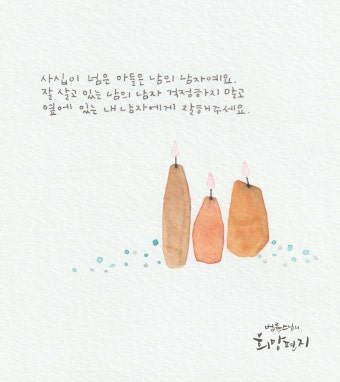 사십이 넘은 아들은 남의 남자예요.
잘 살고 있는 남의 남자 걱정하지 말고
옆에 있는 내 남자에게 잘해주세요.
법륜스님의
희망편지